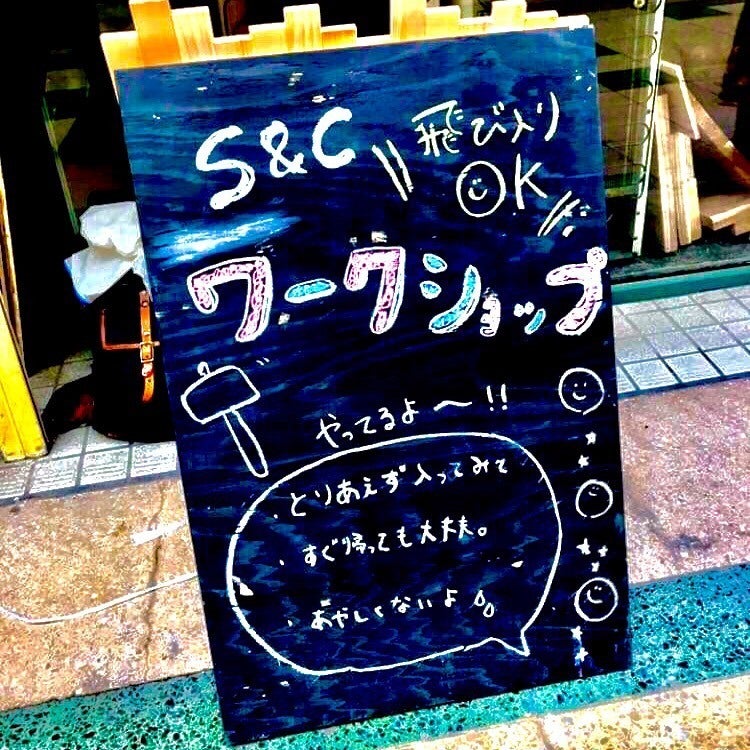 S&C
飛び入り
OK
ワークショップ
やってるよ〜!!
・とりあえず入ってみて
・すぐ帰っても大丈夫。
・あやしくないよ